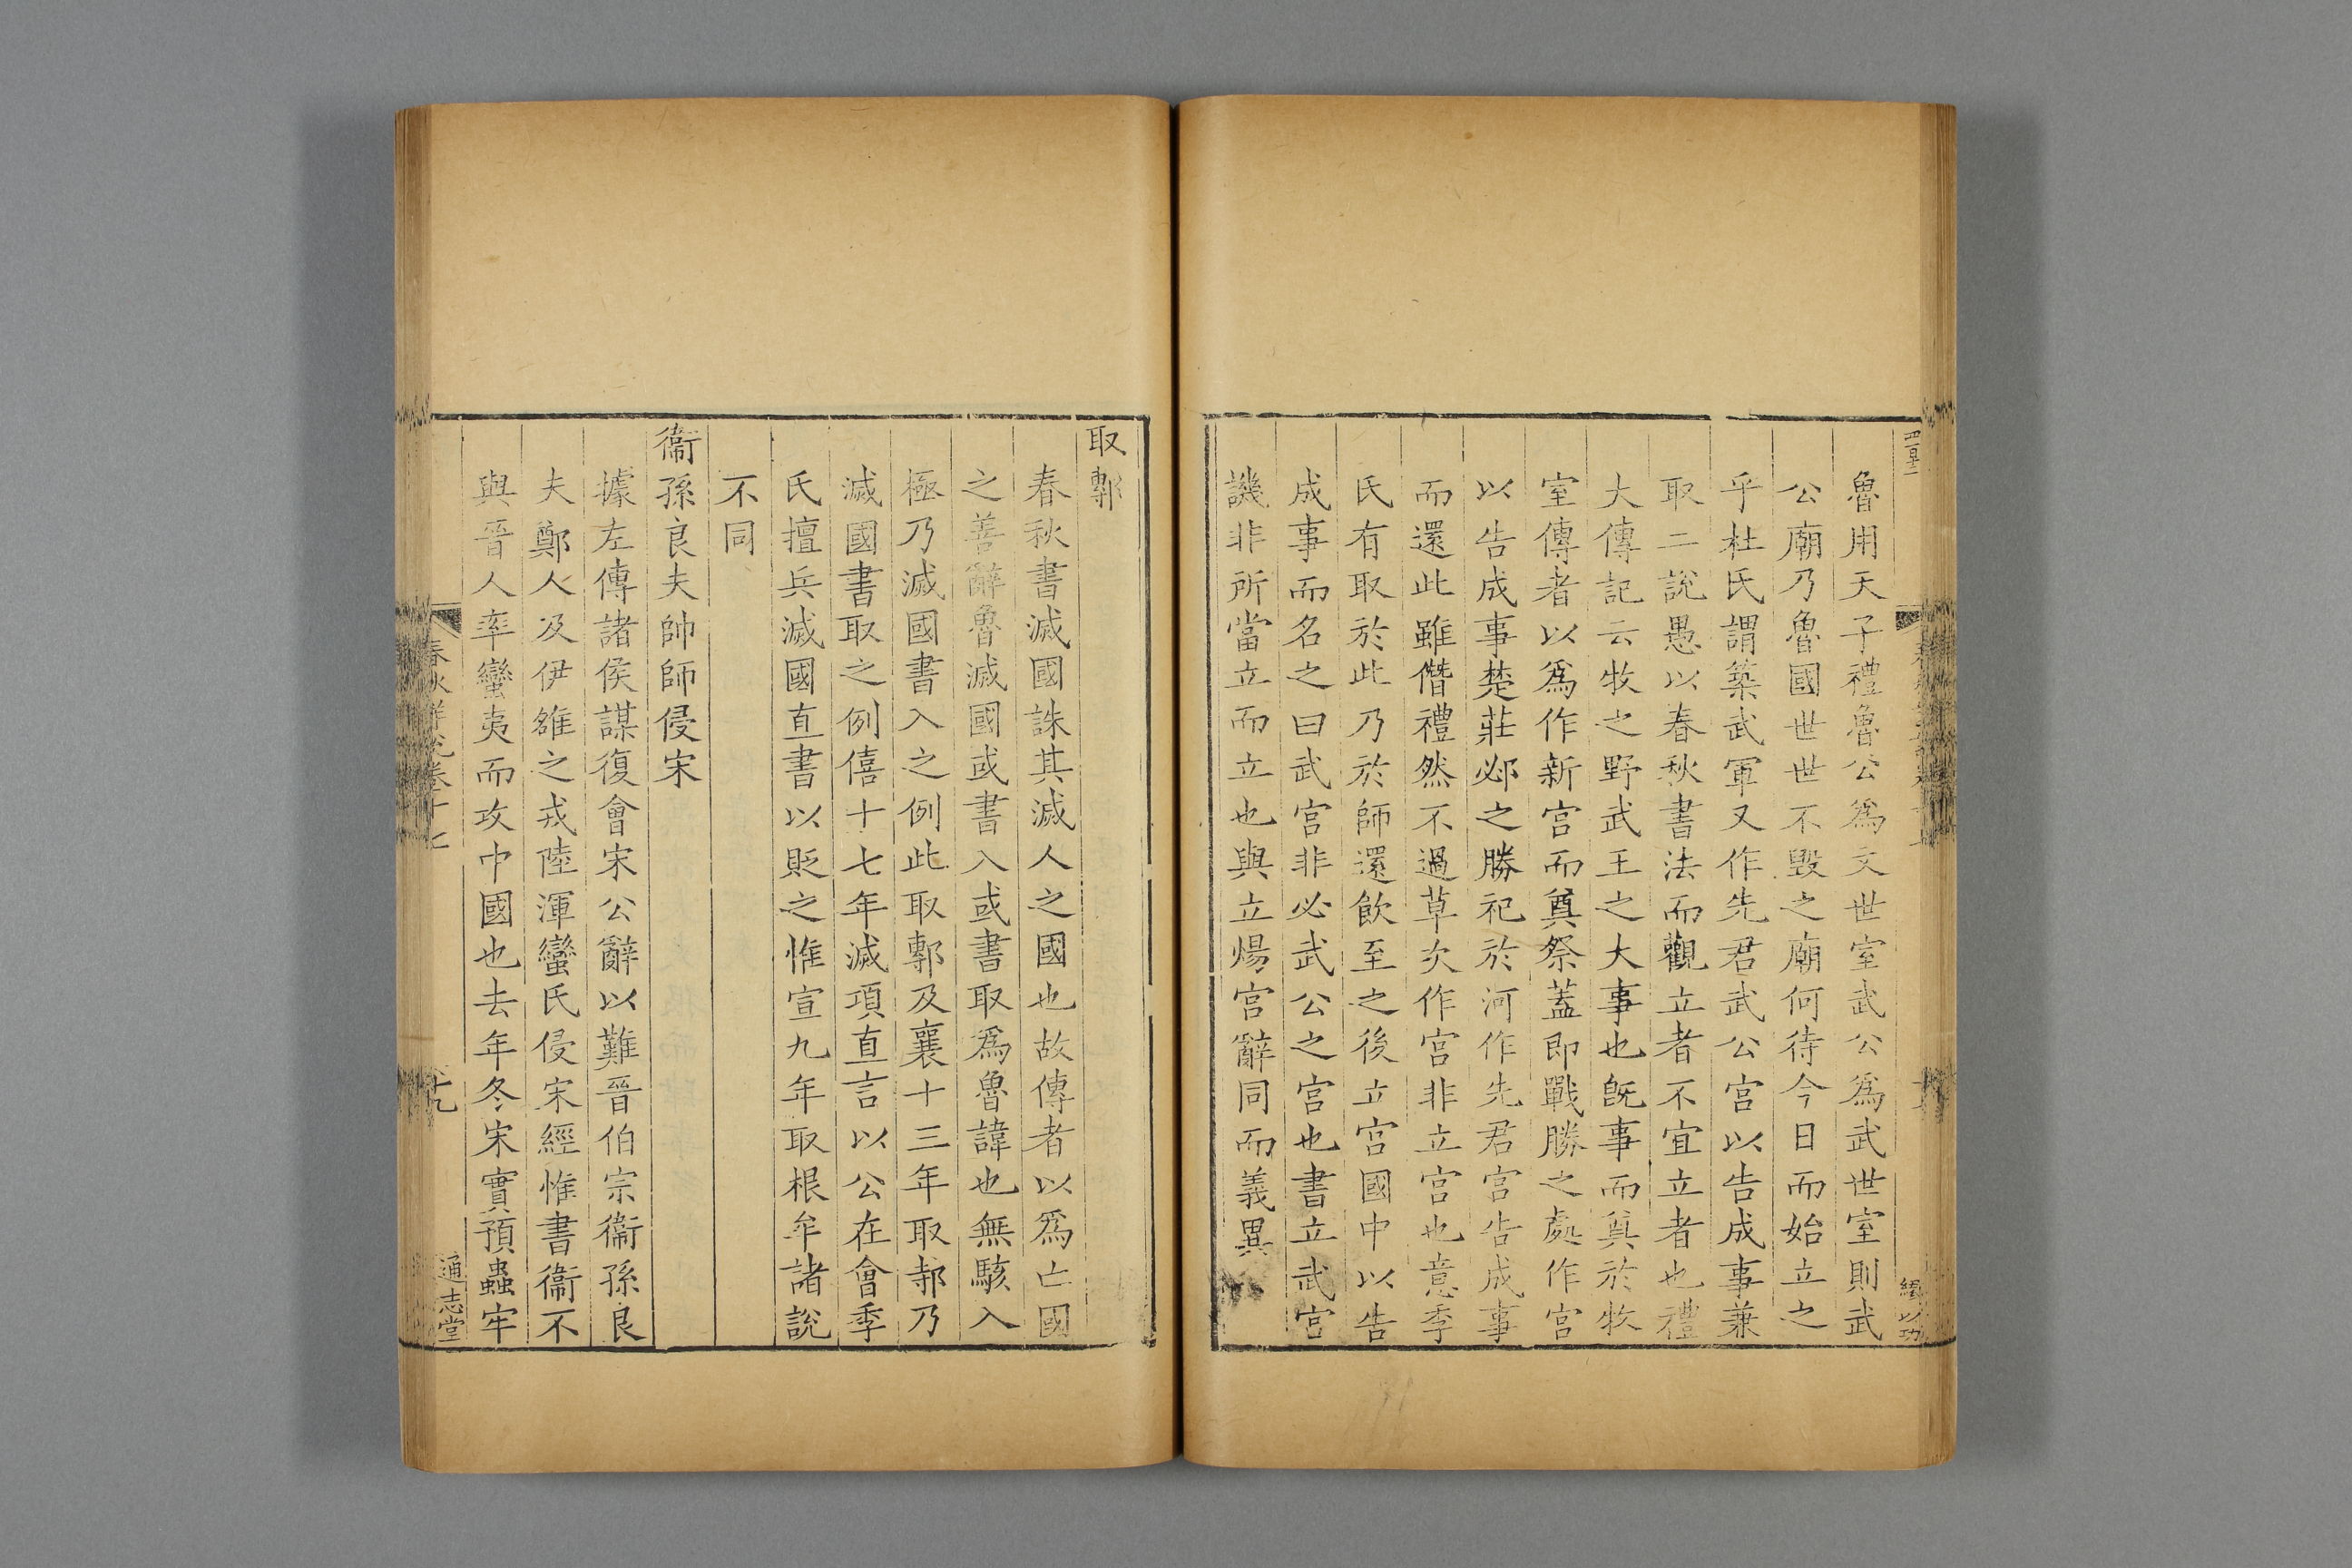 魯用天子禮魯公爲文世室武公爲武世室則武
公廟乃魯國世世不毁之廟何待今日而始立之
乎杜氏謂築武軍又作先君武公宫以告成事兼
取二說愚以春秋書法而觀立者不宜立者也禮
大傳記云牧之野武王之大事也旣事而奠於牧
室傳者以爲作新宫而奠祭蓋即戰勝之處作宫
以告成事楚莊邲之勝祀於河作先君宫告成事
而還此雖僭禮然不過草次作宫非立宫也意季
氏有取於此乃於師還飲至之後立宫國中以告
成事而名之曰武宫非必武公之宫也書立武宫
譏非所當立而立也與立煬宫辭同而義異
取鄟
春秋書滅國誅其滅人之國也故傳者以爲亡國
之善辭魯滅國或書入或書取爲魯諱也無駭入
極乃滅國書入之例此取鄟及襄十三年取邿乃
滅國書取之例僖十七年滅項直言以公在會季
氏擅兵滅國直書以貶之惟宣九年取根牟諸說
不同
衞孫良夫帥師侵宋
據左傳諸侯謀復會宋公辭以難晉伯宗衞孫良
夫鄭人及伊雒之戎陸渾蠻氏侵宋經惟書衞不
與晉人率蠻夷而攻中國也去年冬宋實預蟲牢
春秋詳說卷十七
通志堂